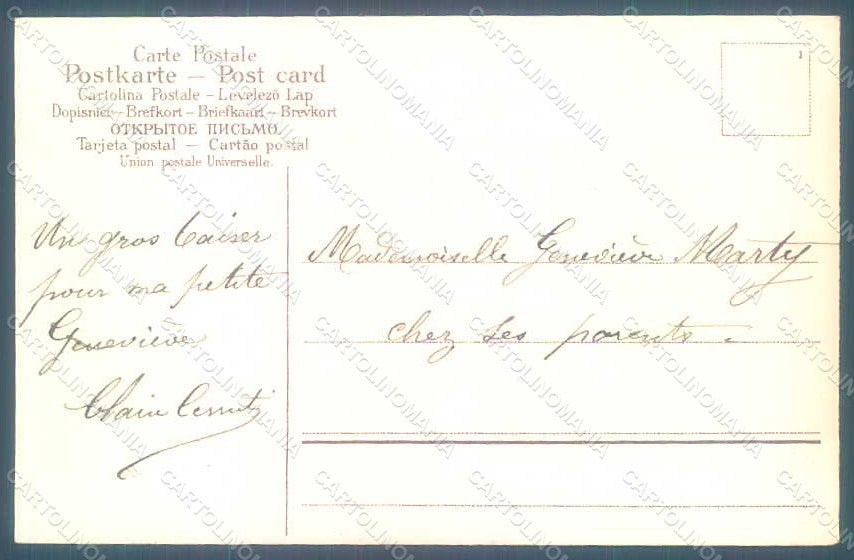 Carte Postale
Postkarte — Post card
Cartolina Postale – Levelező Lap
Dopisnice – Brefkort – Briefkaart – Brevkort
ОТКРЫТОЕ ПИСЬМО.
Tarjeta postal — Cartão postal
Union postale Universelle.
Un gros baiser
pour ma petite
Geneviève
Mademoiselle Geneviève Marty
chez ses parents
CARTOLINOMANIA